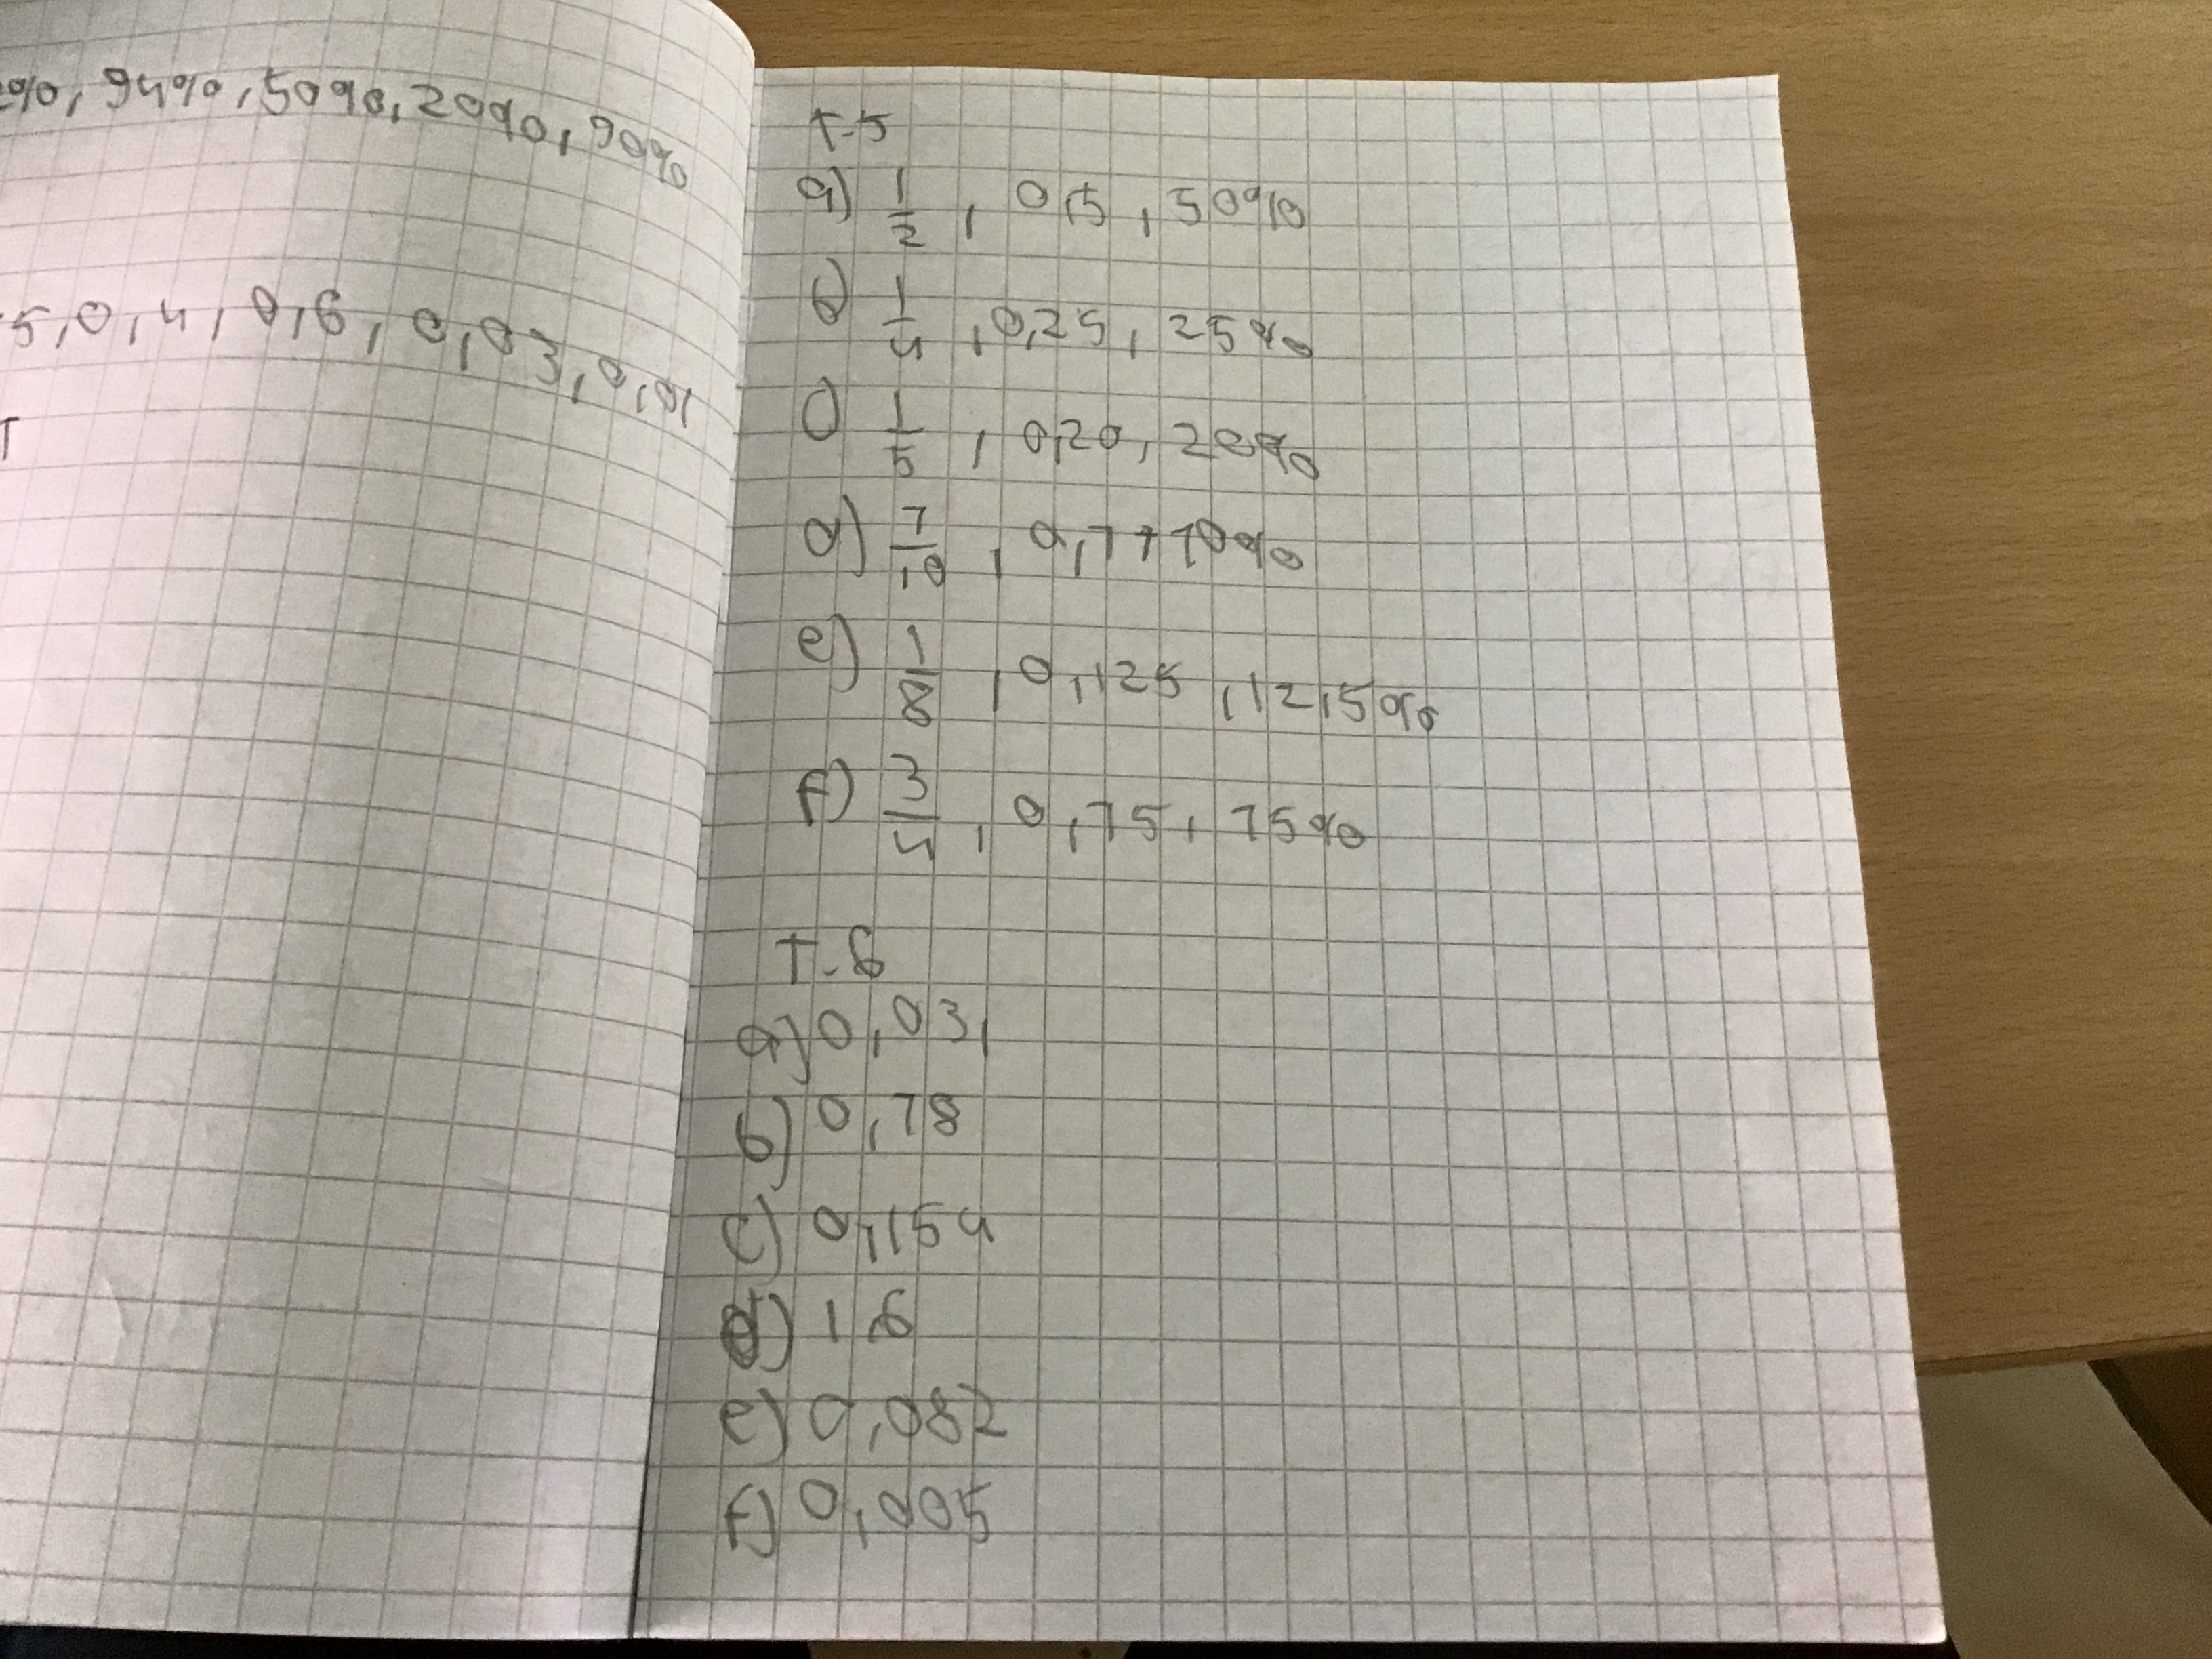 %, 94%, 50%, 20%, 90%
5, 0,4, 0,6, 0,03, 0,01
T-5
a) 1/2, 0,5, 50%
b) 1/4, 0,25, 25%
c) 1/5, 0,20, 20%
d) 7/10, 0,7 70%
e) 1/8, 0,125, 12,5%
f) 3/4, 0,75, 75%
T-6
a) 0,03,
b) 0,78
c) 0,154
d) 1,6
e) 0,082
f) 0,005